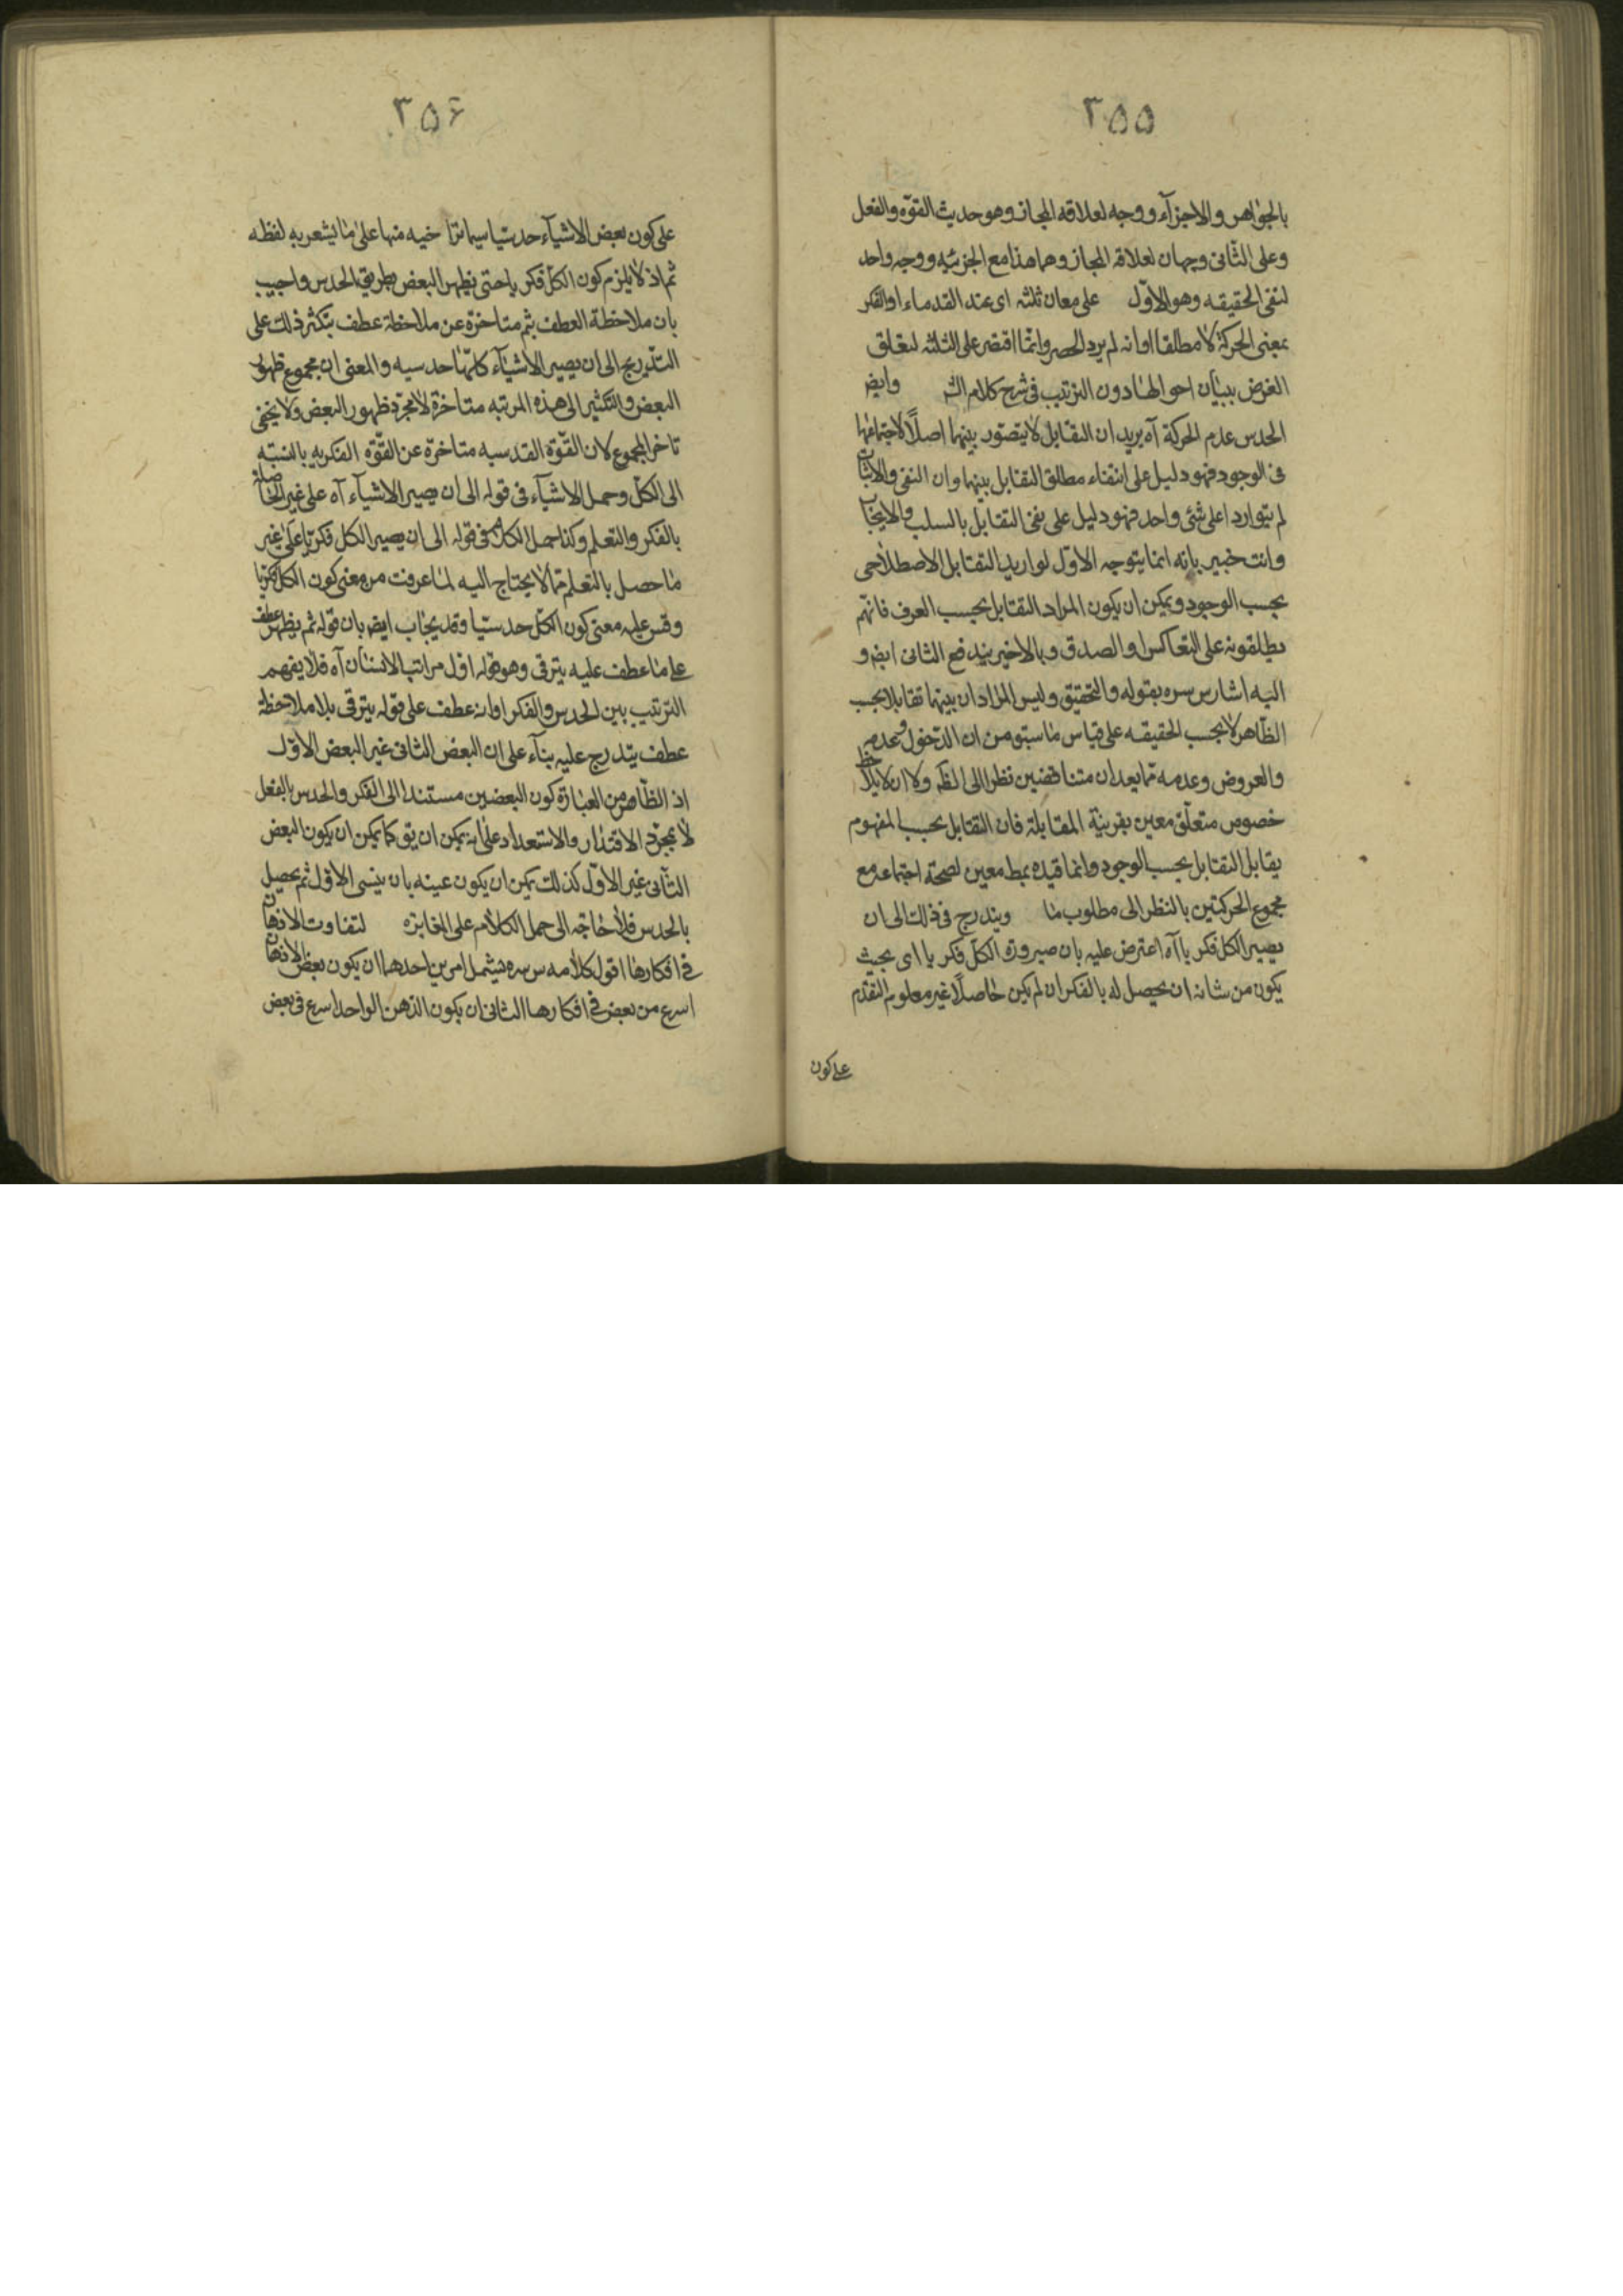 ٣۵۵
بالجواهر والاجزآء ووجه لعلاقه المجاز وهو حديث القوّه والفعل
وعلى الثّانى وجهان لعلاقه المجاز وهما هذا مع الجزئيه ووجه واحد
لنفى الحقيقه وهو الاوّل على معان ثلثه اى عند القدماء او الفكر
بمعنى الحركة لا مطلقا او انه لم يرد الحصر وانّما اقتصر على الثلثه لتعلق
الغرض ببيان احوالها دون الترتيب فى شرح كلام الش وايض
الحدس عدم الحركة آه يريد ان التقابل لا يتصوّر بينهما اصلًا لاجتماعهما
فى الوجود فهو دليل على انتفاء مطلق التقابل بينهما وان النفى والاثبات
لم يتواردا على شئ واحد فهو دليل على نفى التقابل بالسلب والايجاب
وانت خبير بانه انما يتوجه الاوّل لو اريد التقابل الاصطلاحى
بحسب الوجود ويمكن ان يكون المراد التقابل بحسب العرف فانّهم
يطلقونه على التعاكس او الصدق وبالاخير يندفع الثانى ايض و
اليه اشار س سره بقوله والتحقيق وليس المراد ان بينهما تقابلا بحسب
الظاهر لا بحسب الحقيقه على قياس ما سبق من ان الدّخول وعدمه
والعروض وعدمه مما يعدان متناقضين نظرا الى الظ ولا ان لا يلاحظ
خصوص متعلّق معين بقرينة المقابلة فان التقابل بحسب المفهوم
يقابل التقابل بحسب الوجود وانما قيده بمط معين لصحة اجتماعه مع
مجموع الحركتين بالنظر الى مطلوب ما ويندرج فى ذلك الى ان
يصير الكل فكريا آه اعترض عليه بان صيرورة الكلّ فكريا اى بحيث
يكون من شانه ان يحصل له بالفكر ان لم يكن حاصلًا غير معلوم التقدّم
على كون
٣۵۶
على كون بعض الاشيآء حدسيّا سيما تراخيه منها على ما يشعر به لفظه
ثم اذ لا يلزم كون الكلّ فكريا حتى يظهر البعض بطريق الحدس واجيب
بان ملاحظة العطف بثم متاخرة عن ملاحظة عطف يتكثر ذلك على
التّدريج الى ان يصير الاشيآء كلّها حدسيه والمعنى ان مجموع ظهور
البعض والتكثير الى هذه المرتبه متاخرة لا مجرّد ظهور البعض ولا يخفى
تاخر المجموع لان القوّة القدسيه متاخرة عن القوّة الفكريه بالنسبة
الى الكلّ وحمل الاشيآء فى قوله الى ان يصير الاشيآء آه على غير الحاصلة
بالفكر والتعلم وكذا حمل الكل فى قوله الى ان يصير الكل فكريّا على غير
ما حصل بالتعلم ممّا لا يحتاج اليه لما عرفت من معنى كون الكل فكريا
وقس عليه معنى كون الكلّ حدسيّا وقد يجاب ايض بان قوله ثم يظهر عطف
على ما عطف عليه يترقى وهو قوله اول مراتب الانسان آه فلا يفهم
الترتيب بين الحدس والفكر او انه عطف على قوله يترقى بلا ملاحظة
عطف يتدرج عليه بنآء على ان البعض الثانى غير البعض الاوّل
اذ الظّاهر من العبارة كون البعضين مستندا الى الفكر والحدس بالفعل
لا بمجرّد الاقتدار والاستعداد على انه يمكن ان يق كما يمكن ان يكون البعض
الثّانى غير الاوّل كذلك يمكن ان يكون عينه بان ينسى الاوّل ثم يحصل
بالحدس فلا حاجه الى حمل الكلام على المغايره لتفاوت الاذهان
فى افكارها اقول كلامه س سره يشمل امرين احدهما ان يكون بعض الاذهان
اسرع من بعض فى افكارها الثانى ان يكون الذهن الواحد اسرع فى بعض